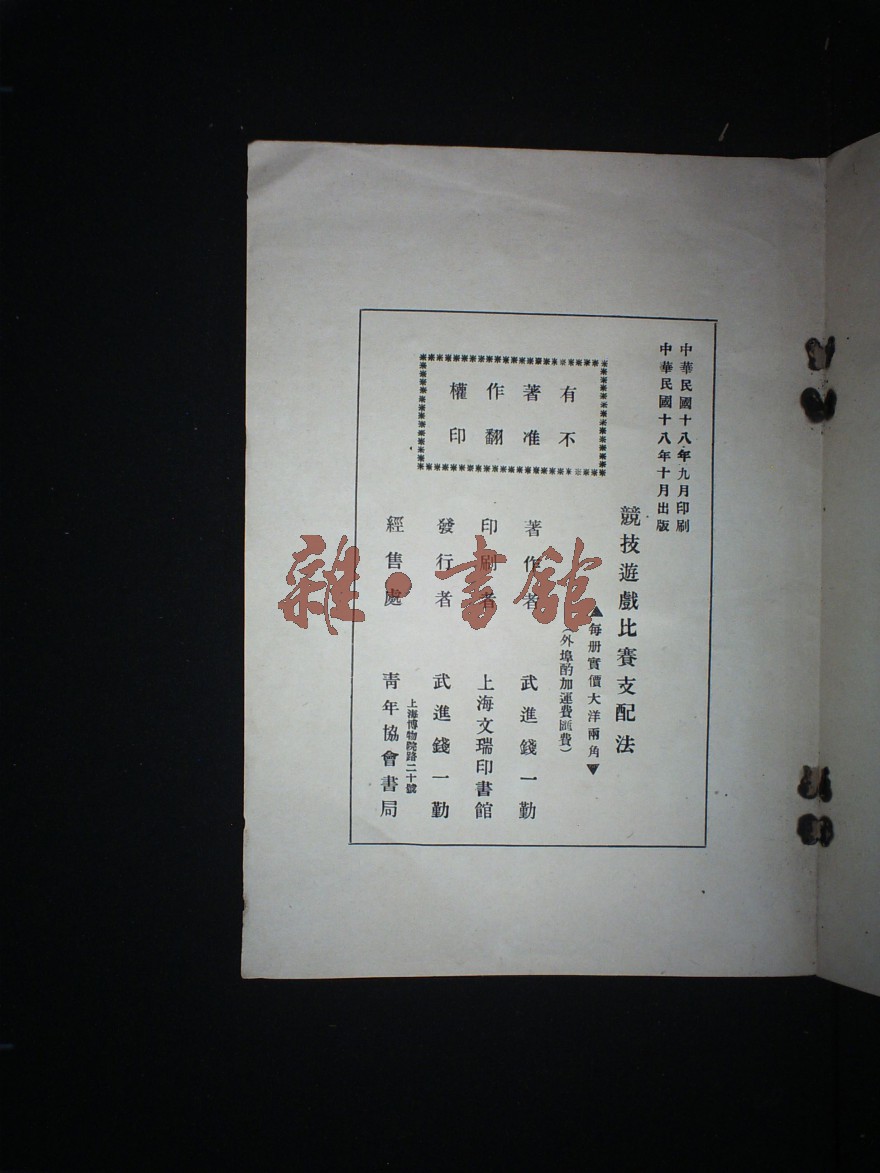 中華民國十八年九月印刷
中華民國十八年十月出版
競技遊戲比賽支配法
▲每册實價大洋兩角▼
(外埠酌加運費匯費)
有著作權
不准翻印
著作者 武進錢一勤
印刷者 上海文瑞印書館
發行者 武進錢一勤
上海博物院路二十號
經售處 青年協會書局
雜·書館